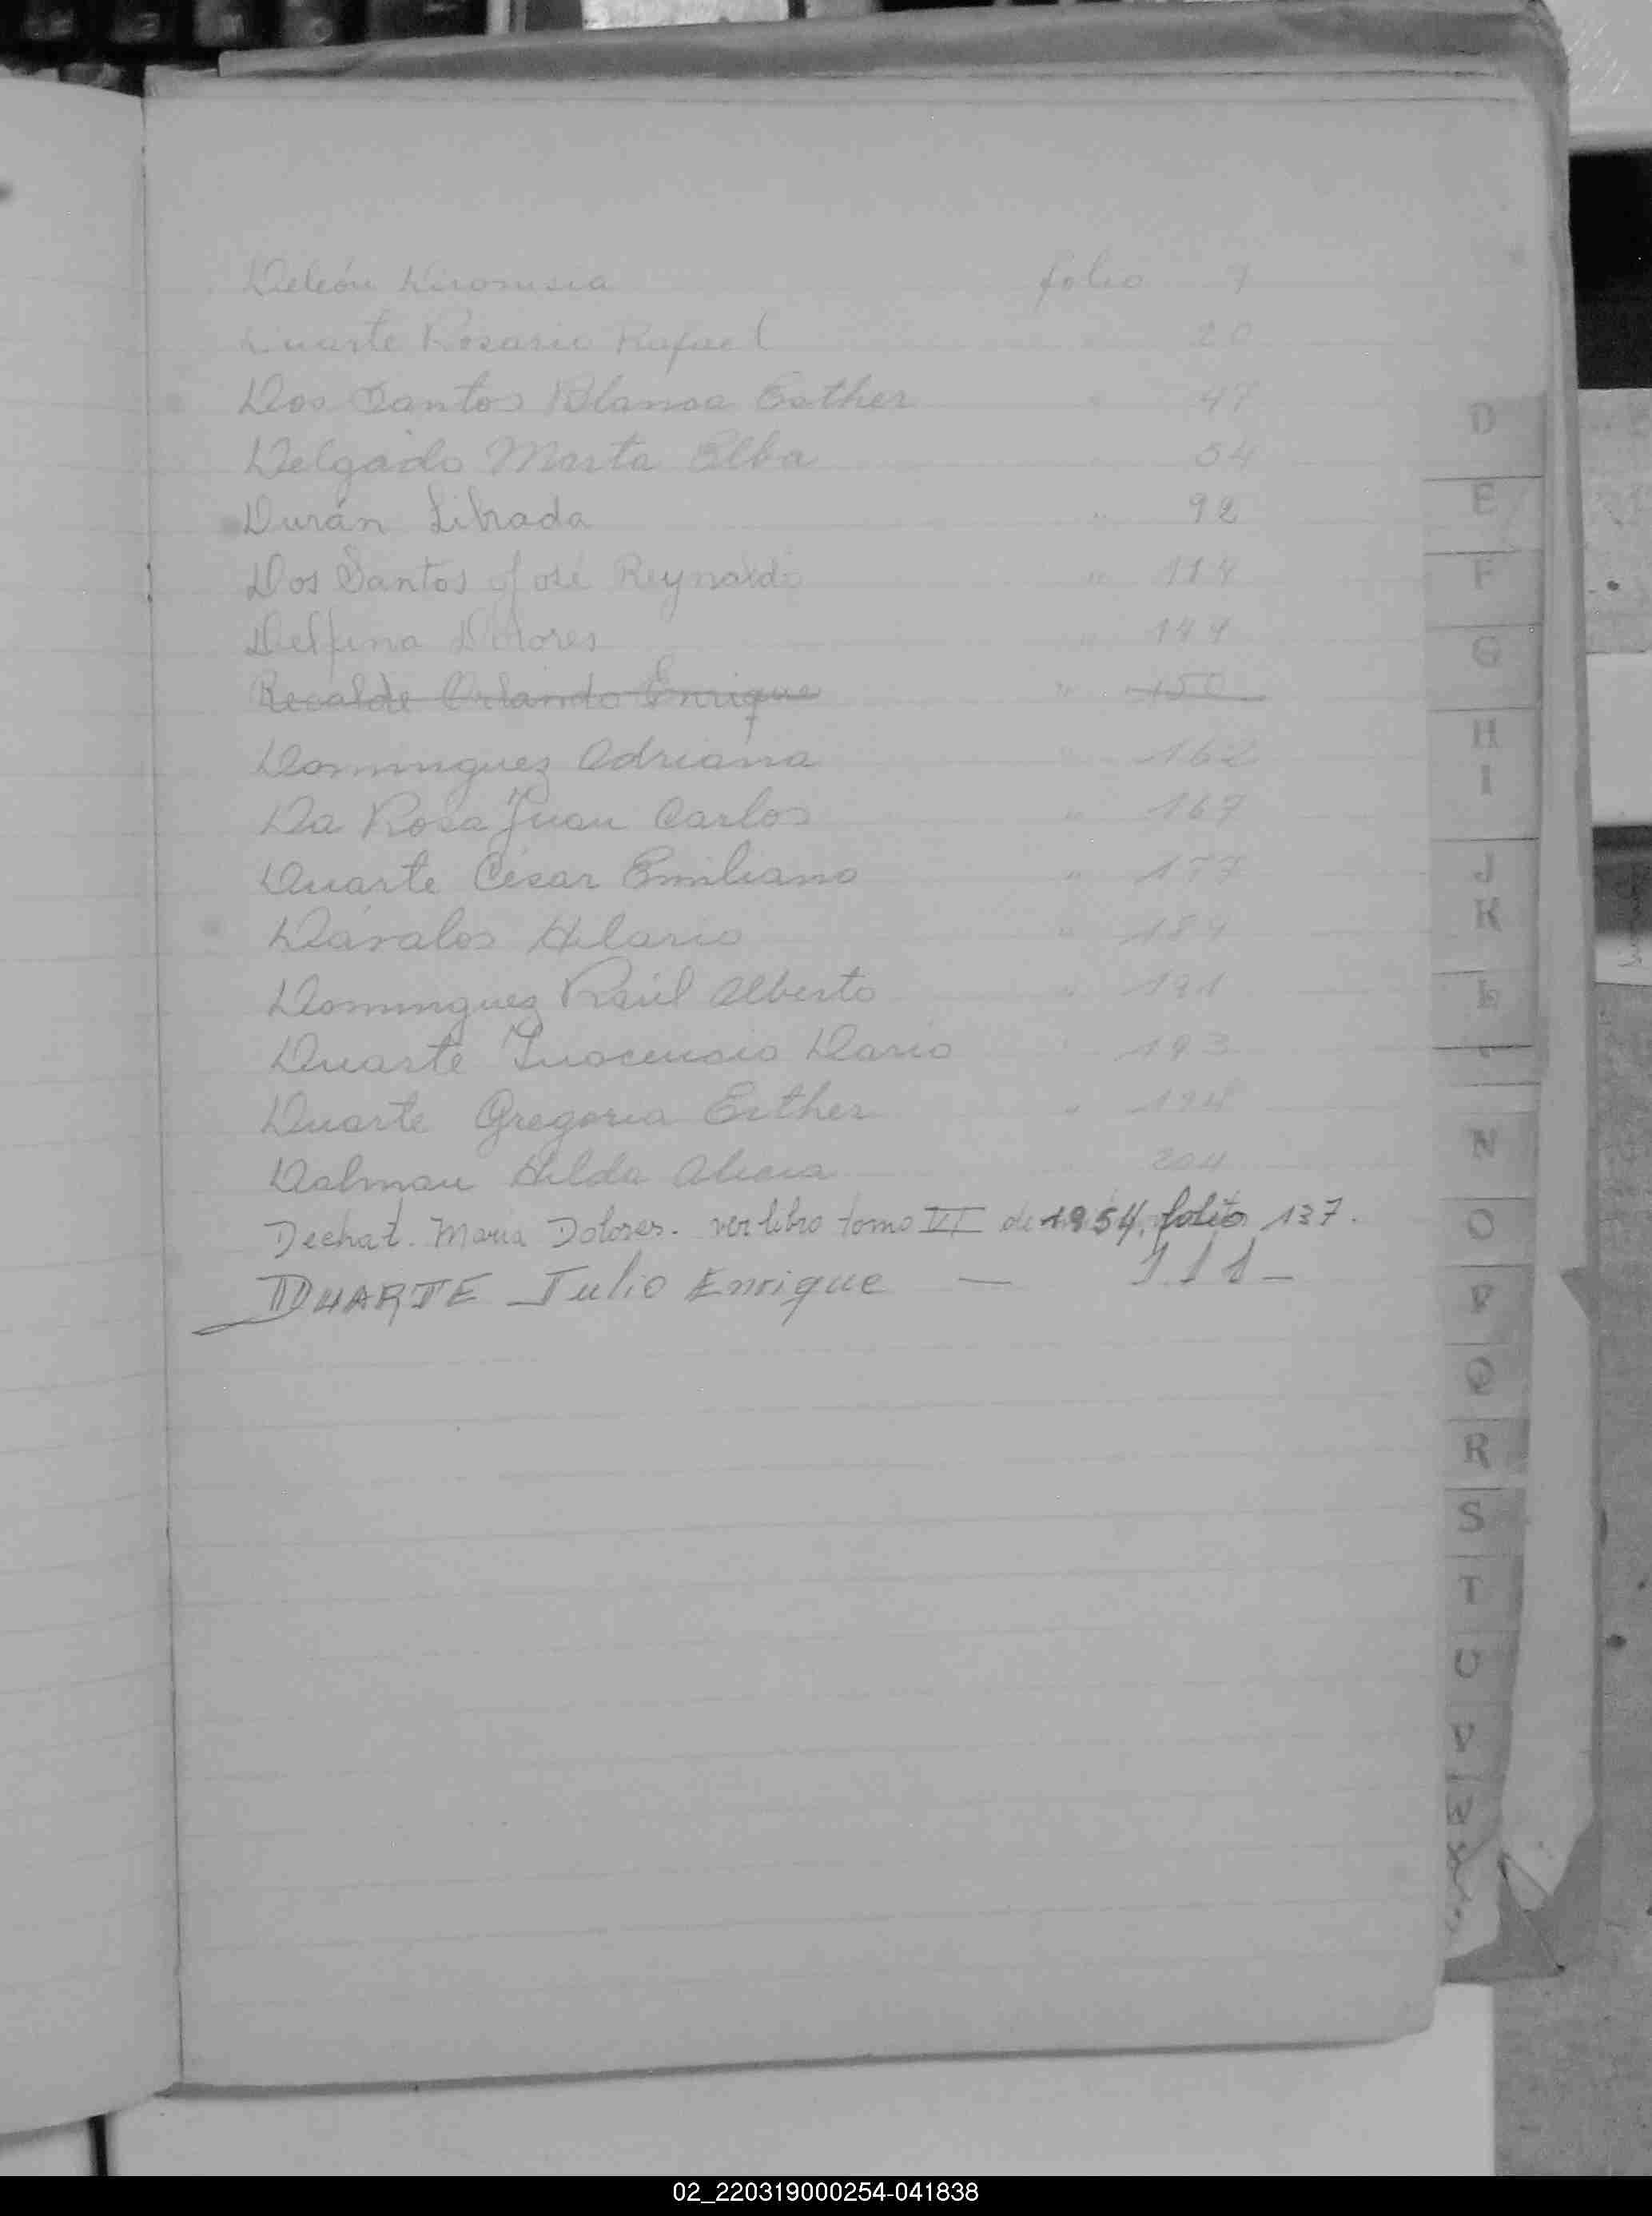 Deleón Dionisia folio 7
Duarte Rosario Rafael " 20
Dos Santos Blanca Esther " 47
Delgado Marta Elba " 54
Durán Librada " 92
Dos Santos José Reynaldo " 114
Delfina Dolores " 144
Recalde Orlando Enrique " 150
Dominguez Adriana " 162
Da Rosa Juan Carlos " 167
Duarte César Emiliano " 177
Dávalos Hilario " 184
Dominguez Raúl Alberto " 191
Duarte Inocencio Dario " 193
Duarte Gregoria Esther " 198
Dalmau Hilda Alicia 204
Dechat. Maria Dolores. ver libro tomo VI de 1954. folio 137.
DUARTE Julio Enrique — 111 —
D
E
F
G
H
I
J
K
L
N
O
P
Q
R
S
T
U
V
02_220319000254-041838